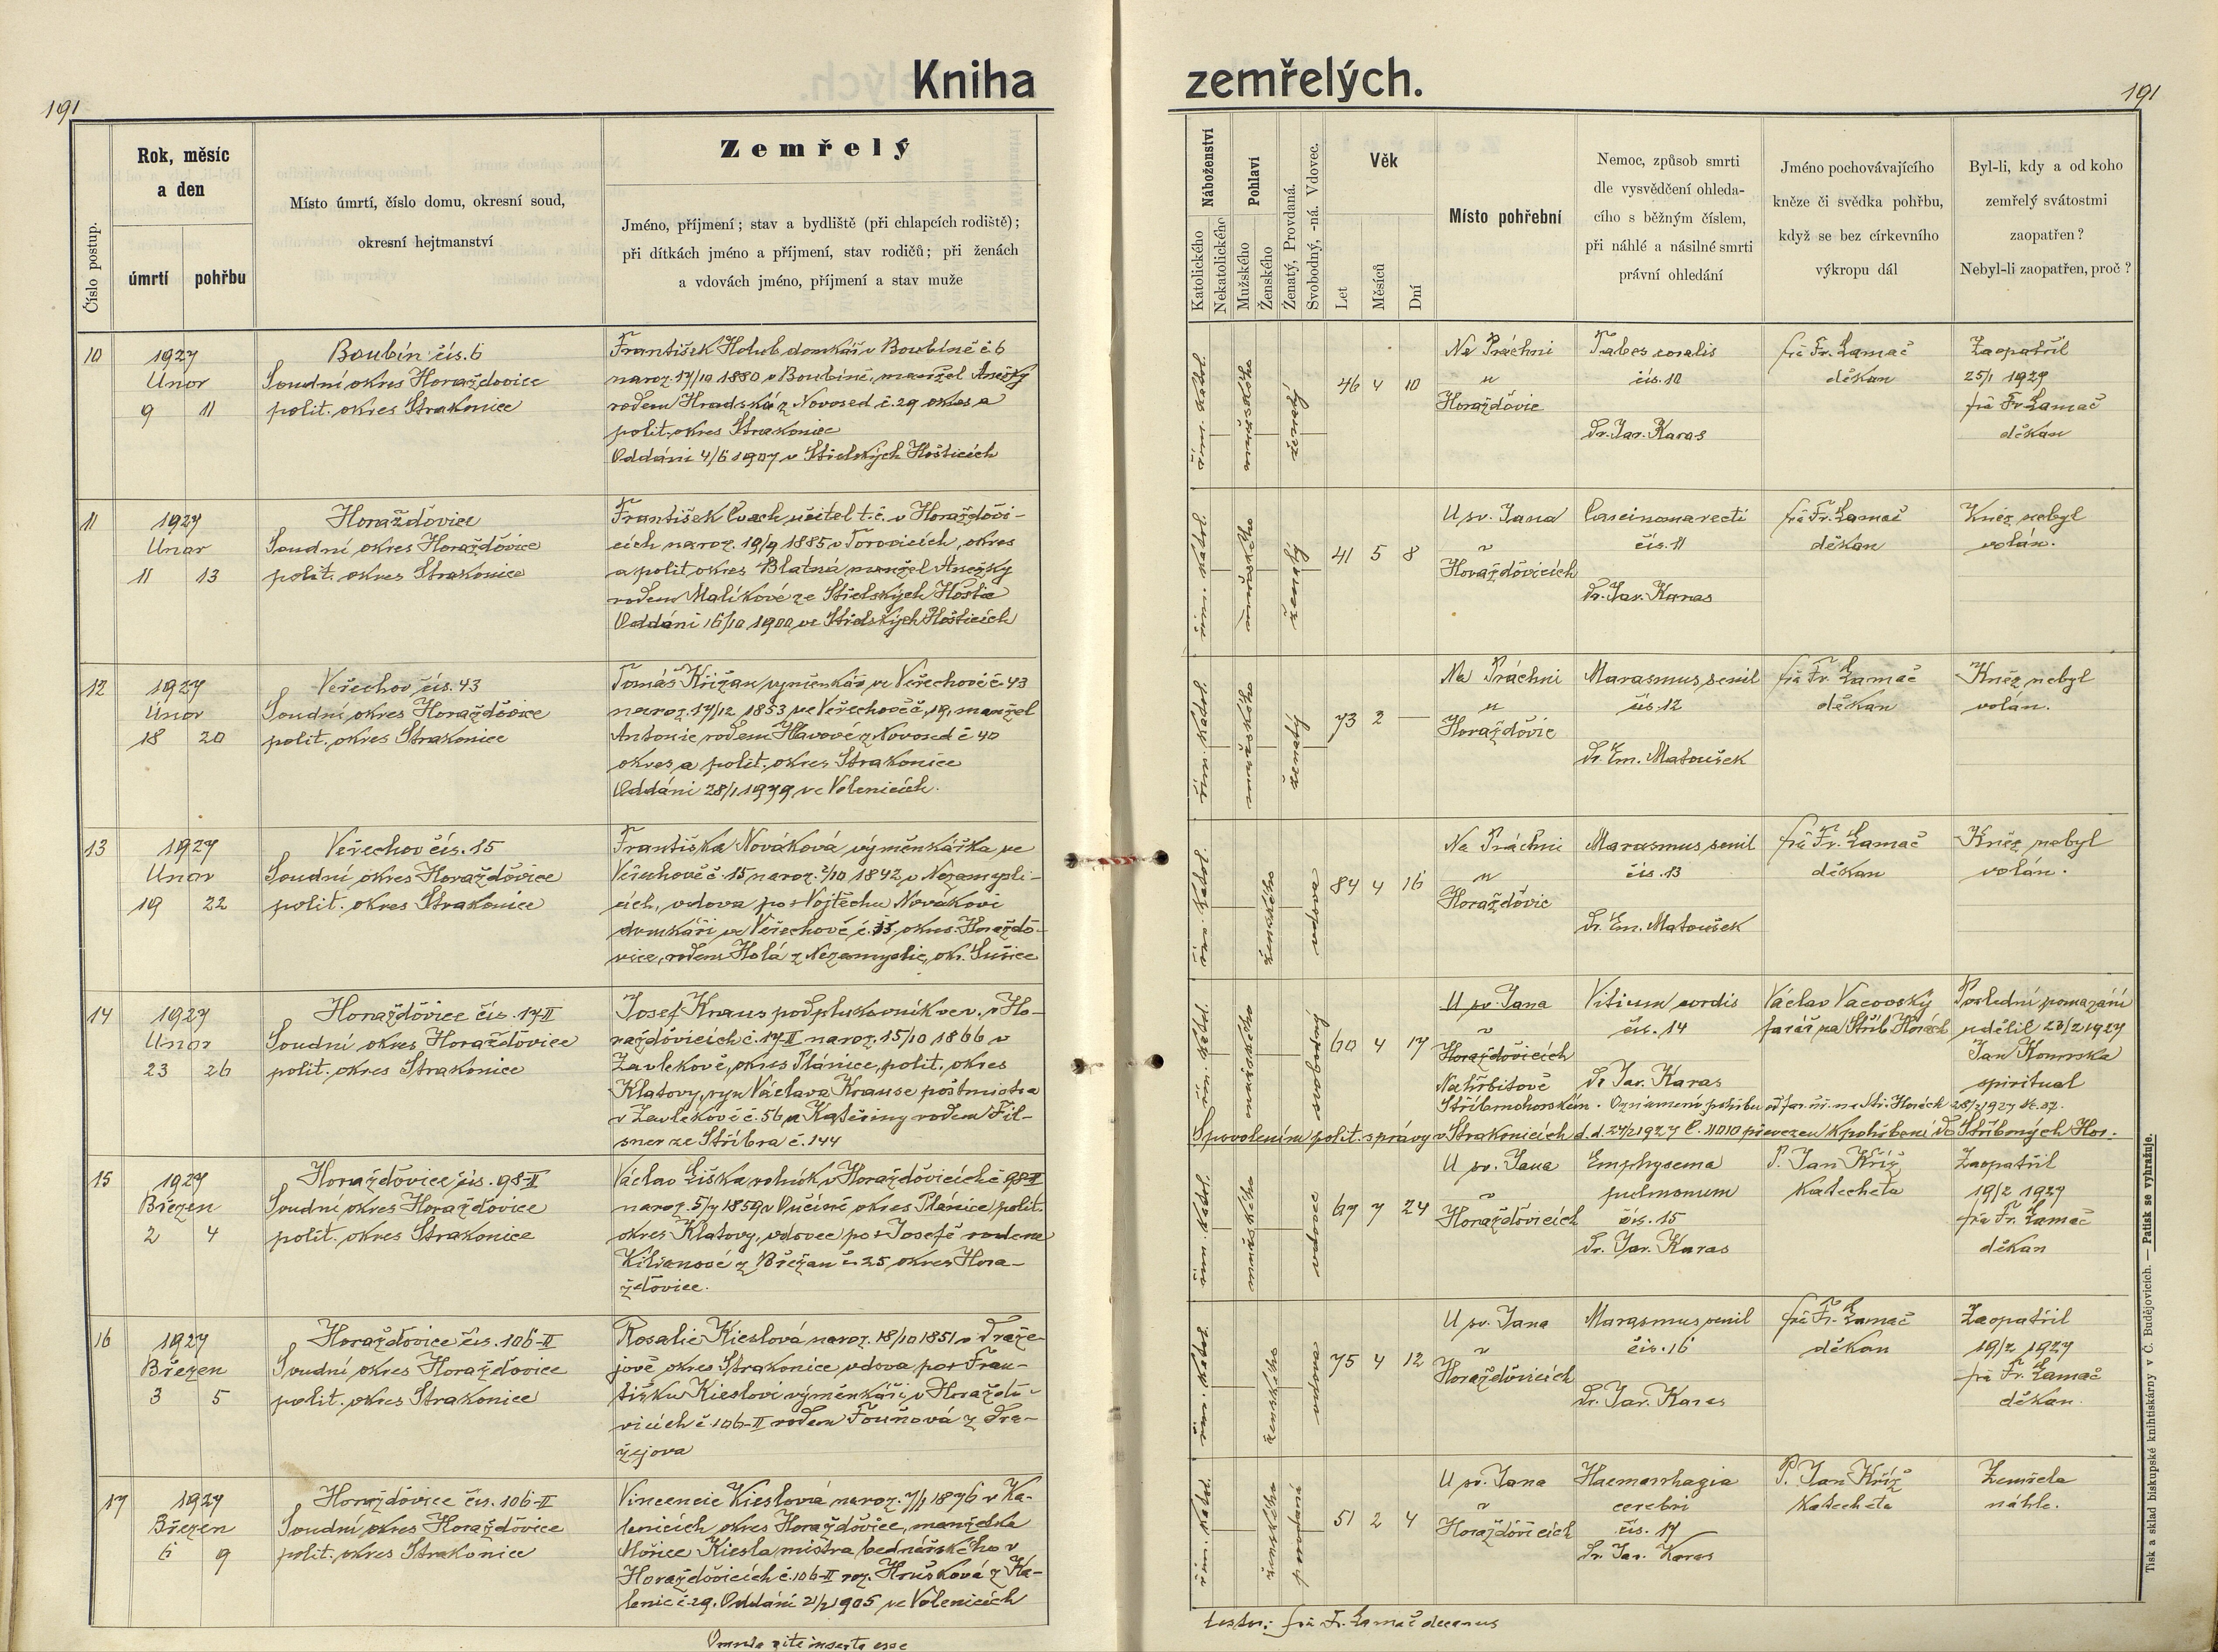 Kniha
zemřelých.
191
191
Číslo postup.
Rok, měsíc
a den
úmrtí
pohřbu
Místo úmrtí, číslo domu, okresní soud,
okresní hejtmanství
Zemřelý
Jméno, příjmení; stav a bydliště (při chlapcích rodiště);
při dítkách jméno a příjmení, stav rodičů; při ženách
a vdovách jméno, příjmení a stav muže
Náboženství
Katolického
Nekatolického
Pohlaví
Mužského
Ženského
Ženatý, Provdaná.
Svobodný, -ná. Vdovec.
Věk
Let
Měsíců
Dní
Místo pohřební
Nemoc, způsob smrti
dle vysvědčení ohleda-
cího s běžným číslem,
při náhlé a násilné smrti
právní ohledání
Jméno pochovávajícího
kněze či svědka pohřbu,
když se bez církevního
výkropu dál
Byl-li, kdy a od koho
zemřelý svátostmi
zaopatřen?
Nebyl-li zaopatřen, proč?
10
1927
Únor
9 11
Boubín čís. 6
Soudní okres Horažďovice
polit. okres Strakonice
František Holub domkář v Boubíně č 6
naroz. 17/10 1880 v Boubíně, manžel Anežky
rodem Hradské z Novosed č. 29 okres a
polit. okres Strakonice
Oddáni 4/6 1907 v Střelských Hošticích
řím. katol.
mužského
ženatý
46 4 10
Na Práchni
u
Horažďovic
Tabes
čís. 10
Dr. Jar. Karas
frá Fr. Lamač
děkan
Zaopatřil
25/1 1927
frá Fr. Lamač
děkan
11
1927
Únor
11 13
Horažďovice
Soudní okres Horažďovice
polit. okres Strakonice
František Cvach učitel t. č. v Horažďovi-
cích naroz. 19/9 1885 v okres
a polit okres Blatná manžel Anežky
rodem Malíkové ze Střelských Hoštic
Oddáni 16/10 1900 ve Střelských Hošticích
řím. katol.
mužského
ženatý
41 5 8
U sv. Jana
v
Horažďovicích
Carcinoma recti
čís. 11
Dr. Jar. Karas
frá Fr. Lamač
děkan
Kněz nebyl
volán.
12
1927
Únor
18 20
Veřechov čís. 43
Soudní okres Horažďovice
polit. okres Strakonice
Tomáš Křižan výměnkář ve Veřechově č. 43
naroz. 17/12 1853 ve Veřechově č. 19, manžel
Antonie rodem Hlavové z Novosed č 40
okres a polit. okres Strakonice
Oddáni 28/1 1979 ve Volenicích.
řím. katol.
mužského
ženatý
73 2 —
Na Práchni
u
Horažďovic
Marasmus senil
čís. 12
Dr. Em. Matoušek
frá Fr. Lamač
děkan
Kněz nebyl
volán.
13
1927
Únor
19 22
Veřechov čís. 15
Soudní okres Horažďovice
polit. okres Strakonice
Františka Nováková výměnkářka ve
Veřechově č. 15 naroz. 2/10 1842 v Nezamysli-
cích, vdova po + Vojtěchu Novákovi
domkáři ve Veřechově č. 15, okres Horažďo-
vice, rodem Holá z Nezamyslic, okr. Sušice
řím. katol.
ženského
vdova
84 4 16
Na Práchni
u
Horažďovic
Marasmus senil
čís. 13
Dr. Em. Matoušek
frá Fr. Lamač
děkan
Kněz nebyl
volán.
14
1927
Únor
23 26
Horažďovice čís. 17 II
Soudní okres Horažďovice
polit. okres Strakonice
Josef Kraus podplukovník v. v. v Ho-
ražďovicích č. 17 II naroz. 15/10 1866 v
Zavlekově, okres Plánice, polit. okres
Klatovy, syn Václava Krause poštmistra
v Zavlekově č. 56 a Kateřiny rodem Fil-
sner ze Stříbra č. 144
řím. katol.
mužského
svobodný
60 4 17
U sv. Jana
v
Horažďovicích
Na hřbitově
Stříbrnohorském. Oznámení pohřbu od far. úř. na Stř. Horách 28/2 1927 č. 37.
Vitium cordis
čís. 14
Dr Jar. Karas
Václav Vacovský
farář na Stříb. Horách
Poslední pomazání
udělil 23/2 1927
Jan
spiritual
S povolením polit. správy v Strakonicích d. d. 24/2 1927 č. 11010 převezen k pohřbení do Stříbrných Hor.
15
1927
Březen
2 4
Horažďovice čís. 98-II
Soudní okres Horažďovice
polit. okres Strakonice
Václav Liška rolník v Horažďovicích č 98-II
naroz. 5/7 1859 v okres Plánice, polit.
okres Klatovy, vdovec po + Josefě rodem
Kiliánové z Břežan č. 25 okres Hora-
žďovice.
řím. katol.
mužského
vdovec
67 7 24
U sv. Jana
v
Horažďovicích
Emphysema
pulmonum
čís. 15
Dr. Jar. Karas
P. Jan Kříž
katecheta
Zaopatřil
19/2 1927
frá Fr. Lamač
děkan
16
1927
Březen
3 5
Horažďovice čís. 106-II
Soudní okres Horažďovice
polit. okres Strakonice
Rosalie Kieslová naroz. 18/10 1851 v Draže-
jově okres Strakonice vdova po + Fran-
tišku Kieslovi výměnkáři v Horažďo-
vicích č. 106-II rodem Fouňová z Dra-
žejova
řím. katol.
ženského
vdova
75 4 12
U sv. Jana
v
Horažďovicích
Marasmus senil
čís. 16
Dr. Jar. Karas
frá Fr. Lamač
děkan
Zaopatřil
19/2 1927
frá Fr. Lamač
děkan.
17
1927
Březen
6 9
Horažďovice čís. 106-II
Soudní okres Horažďovice
polit. okres Strakonice
Vincencie Kieslová naroz. 7/1 1876 v Ka-
lenicích okres Horažďovice, manželka
Mořice Kiesla mistra bednářského v
Horažďovicích č. 106-II roz. Hrušková z Ka-
lenic č. 29. Oddáni 21/2 1905 ve Volenicích
řím. katol.
ženského
provdaná
51 2 4
U sv. Jana
v
Horažďovicích
Haemorrhagia
cerebri
čís. 17
Dr. Jar. Karas
P. Jan Kříž
katecheta
Zemřela
náhle.
Omnia rite inserta esse
testor: frá Fr. Lamač decanus
Tisk a sklad biskupské knihtiskárny v Č. Budějovicích. — Patisk se vyhražuje.